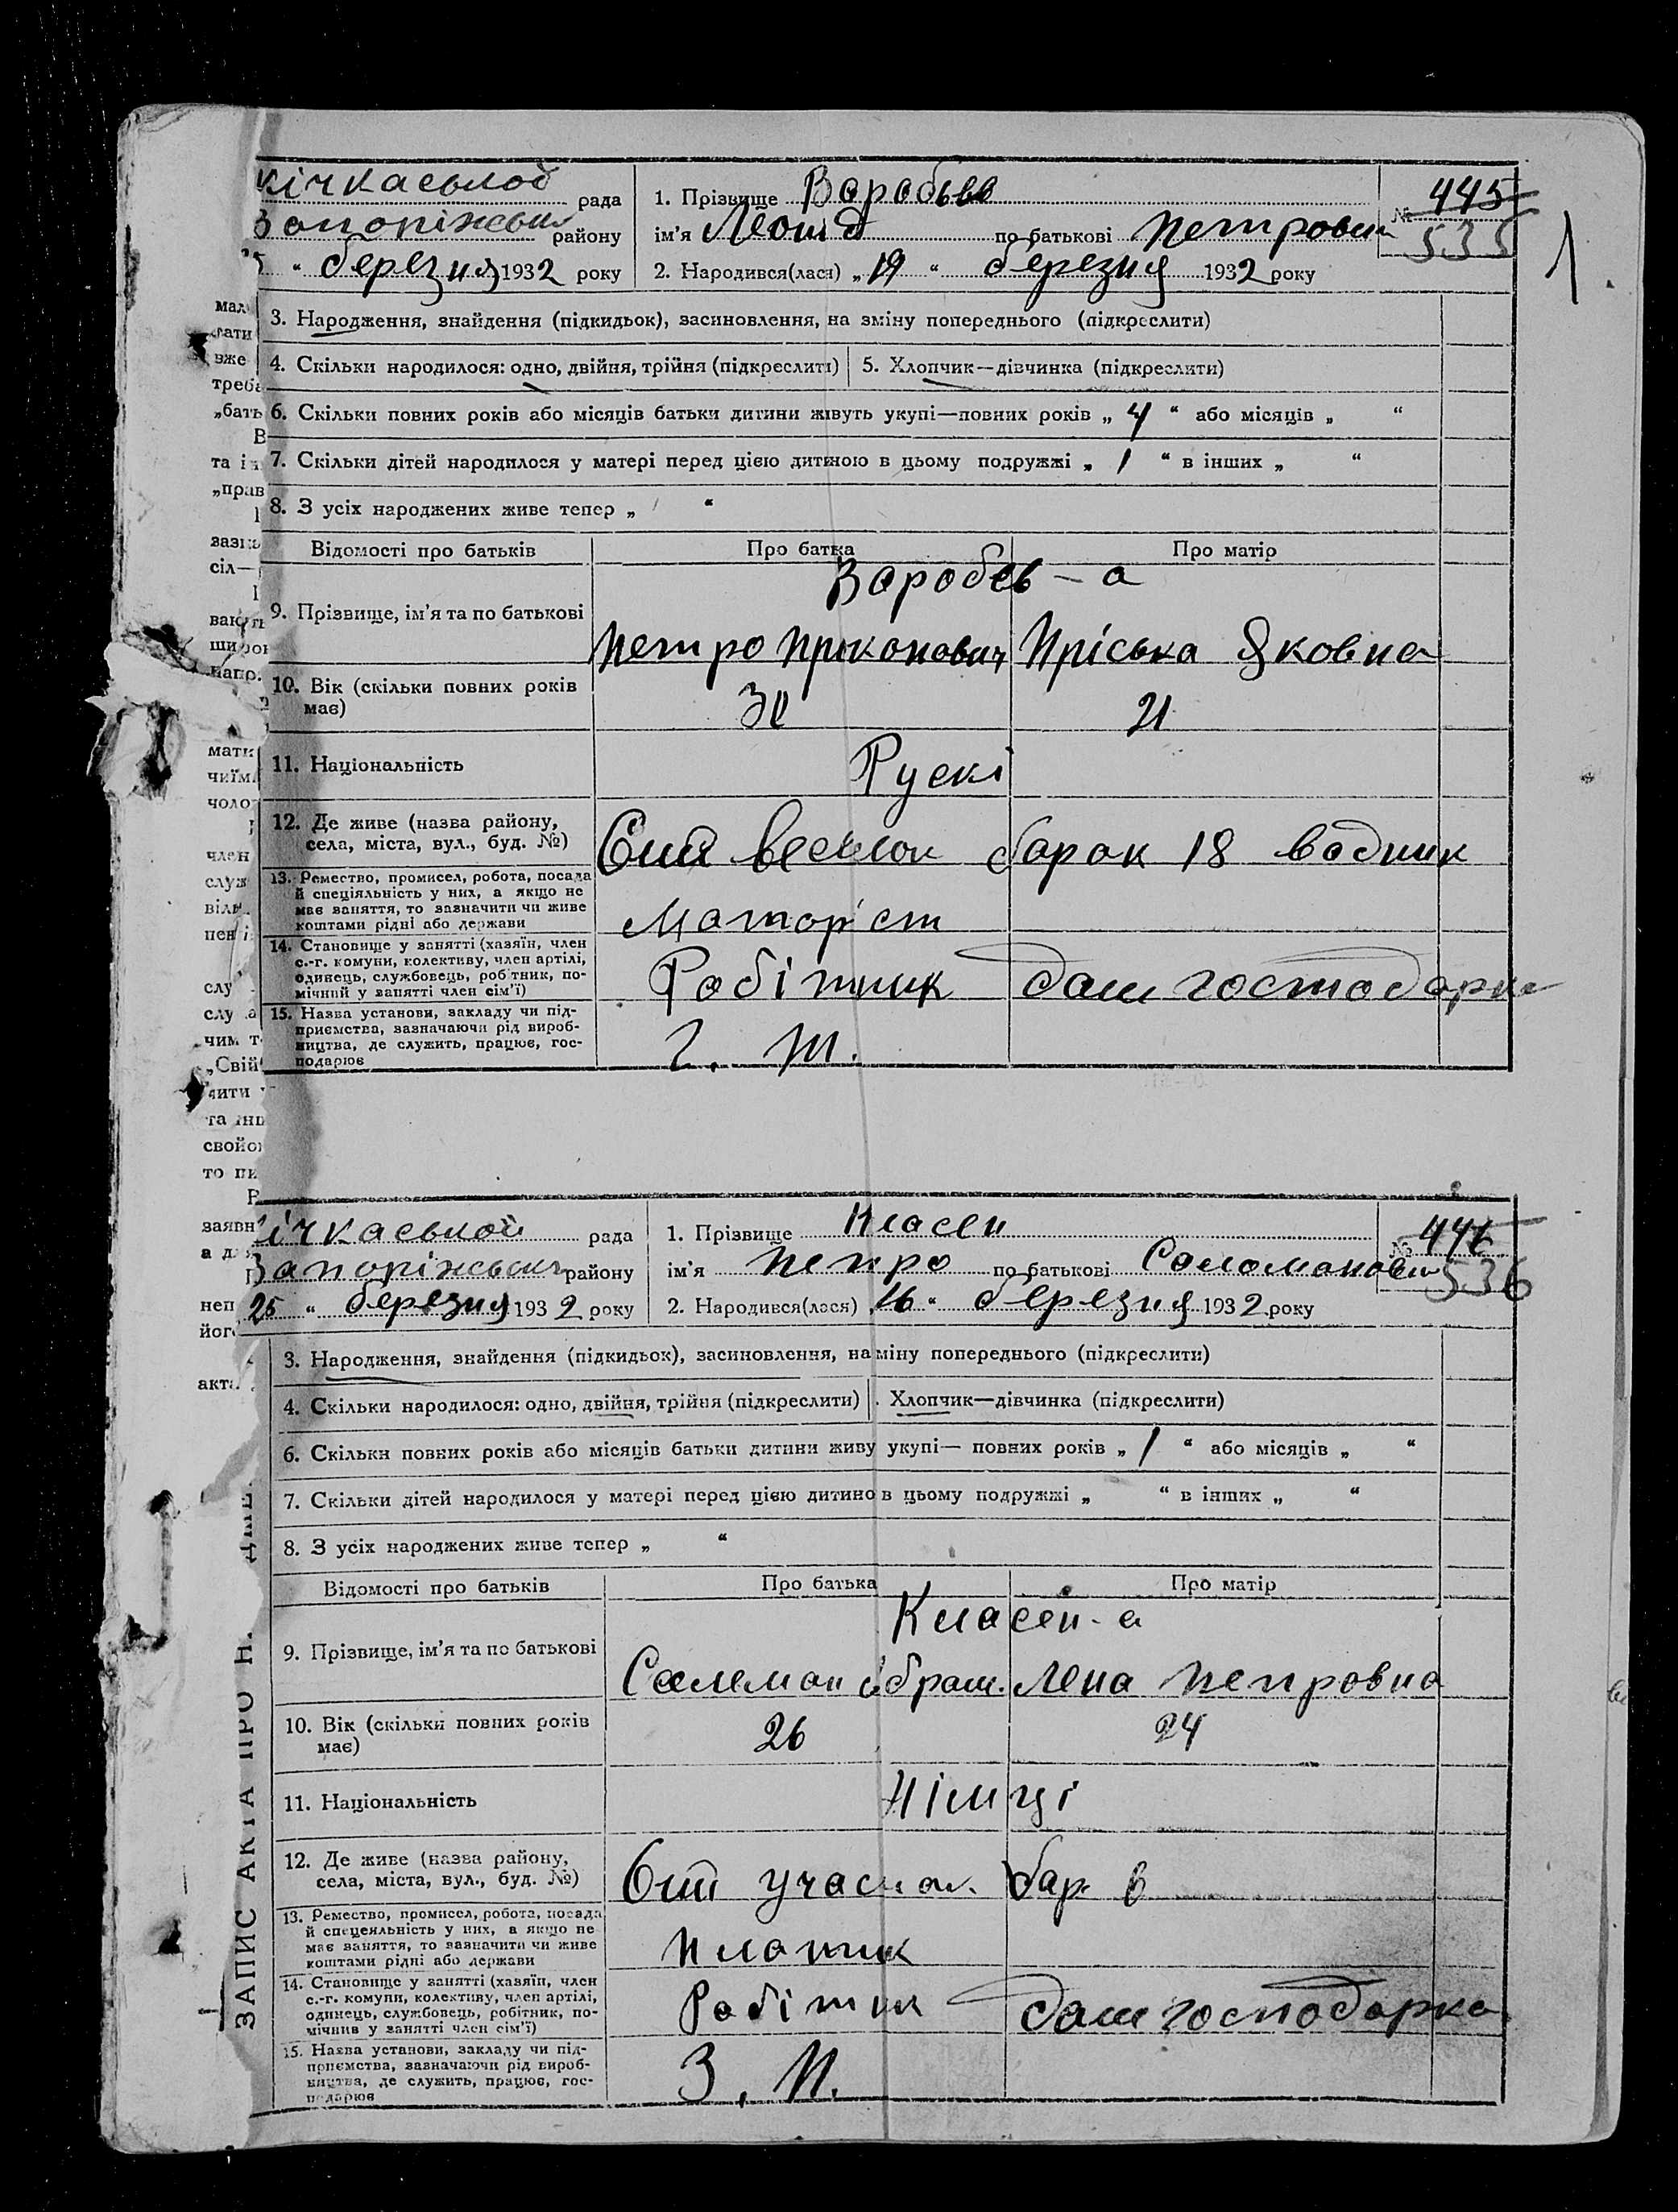 кічкаської рада
Запоріжськ району
25 " березня 1932 року
1. Прізвище Воробьев
ім'я Леонід по батькові Петрович
2. Народився(лася) „19 " березня 1932 року
№ 445
535
1.
3. Народження, знайдення (підкидьок), засиновлення, на зміну попереднього (підкреслити)
4. Скільки народилося: одно, двійня, трійня (підкреслити) 5. Хлопчик—дівчинка (підкреслити)
6. Скільки повних років або місяців батьки дитини живуть укупі—повних років „ 4 " або місяців „ "
7. Скільки дітей народилося у матері перед цією дитиною в цьому подружжі „ 1 " в інших „ "
8. З усіх народжених живе тепер „ "
Відомості про батьків Про батка Про матір
Воробєв - а
9. Прізвище, ім'я та по батькові
Петро Прокопович Пріська Яковна
10. Вік (скільки повних років
має) 21
11. Національність Рускі
12. Де живе (назва району,
села, міста, вул., буд. №) барак 18
13. Ремество, промисел, робота, посада
й спеціяльність у них, а якщо не
має заняття, то зазначити чи живе
коштами рідні або держави
Маторіст
14. Становище у занятті (хазяїн, член
с.-г. комуни, колективу, член артілі,
одинець, службовець, робітник, по-
мічний у занятті член сім'ї)
Робітник дом господарка
15. Назва установи, закладу чи під-
приємства, зазначаючи рід вироб-
ництва, де служить, працює, гос-
подарює
мал
вати
вже
треба
„бать
В
та і
„прав
сіл—
широк
напр.
мати
чоло
член
служ
чим т
„Свій
чити
та інш
свойо
то пи
заявн
а дл
неп
його
акта
ічкаської рада
Запоріжськ району
25 " березня 1932 року
1. Прізвище Класен
ім'я Петро по батькові Соломонович
2. Народився(лася) „16 " березня 1932 року
№ 446
536
3. Народження, знайдення (підкидьок), засиновлення, на міну попереднього (підкреслити)
4. Скільки народилося: одно, двійня, трійня (підкреслити) . Хлопчик—дівчинка (підкреслити)
6. Скільки повних років або місяців батьки дитини живу укупі— повних років „ 1 " або місяців „ "
7. Скільки дітей народилося у матері перед цією дитино в цьому подружжі „ " в інших „ "
8. З усіх народжених живе тепер „ "
Відомості про батьків Про батька Про матір
Класен - а
9. Прізвище, ім'я та по батькові
Абрам. Лена Петровна
10. Вік (скільки повних років
має) 26 24
11. Національність Німці
12. Де живе (назва району,
села, міста, вул., буд. №) бар.
13. Ремество, промисел, робота, посада
й спецеяльність у них, а якщо не
має заняття, то зазначити чи живе
коштами рідні або держави
Плотник
14. Становище у занятті (хазяїн, член
с.-г. комуни, колективу, член артілі,
одинець, службовець, робітник, по-
мічнив у занятті член сім'ї)
Робітник дом господарка
15. Назва установи, закладу чи під-
приємства, зазначаючи рід вироб-
ництва, де служить, працює, гос-
подарює
З. П.
ЗАПИС АКТА ПРО Н.